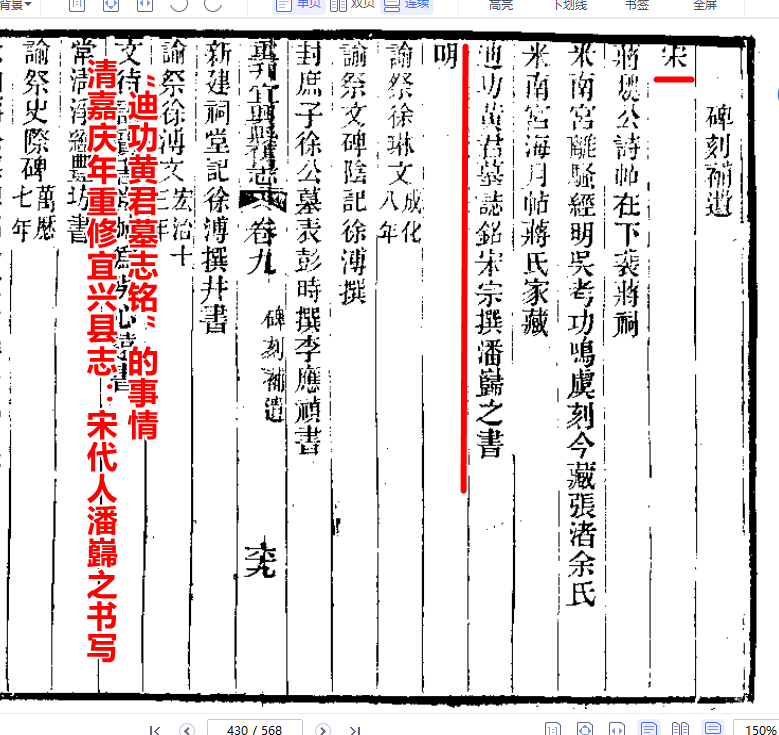 背景
1:1
单页
双页
连续
高亮
下划线
书签
全屏
碑刻補遺
宋
蔣魏公詩帖在下袠蔣祠
米南宮離騷經明吳考功鳴虞刻今藏張渚余氏
米南宮海月帖蔣氏家藏
迪功黄君墓誌銘宋宗撰潘巋之書
明
諭祭徐琳文成化八年
諭祭文碑陰記徐溥撰
封庶子徐公墓表彭時撰李應禎書
卷九
碑刻補遺
新建祠堂記徐溥撰并書
諭祭徐溥文弘治十二年
諭祭史際碑萬歷七年
“迪功黄君墓志铭”的事情
清嘉庆年重修宜兴县志：宋代人潘巋之书写
430 / 568
1:1
150%